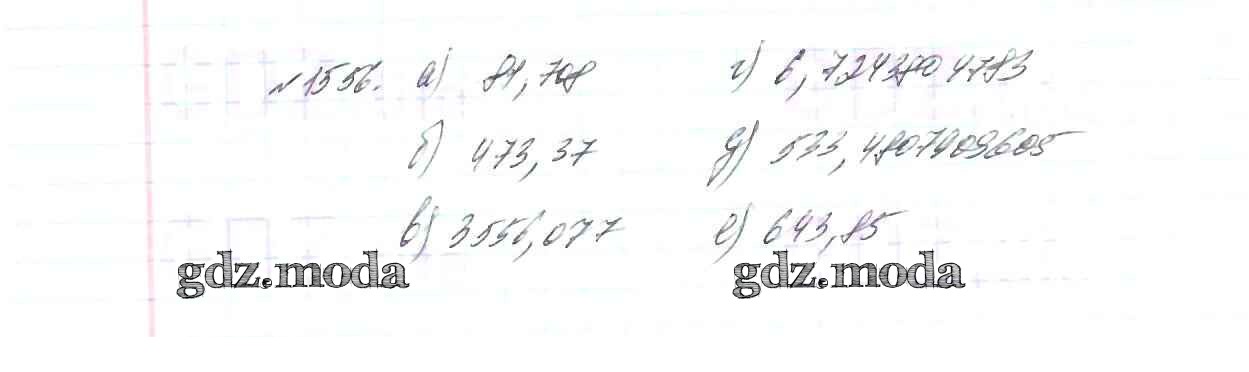 №1556. а) 81,708 г) 6,7243804783
б) 473,37 д) 533,4807909605
в) 3556,077 е) 643,85
gdz.moda gdz.moda